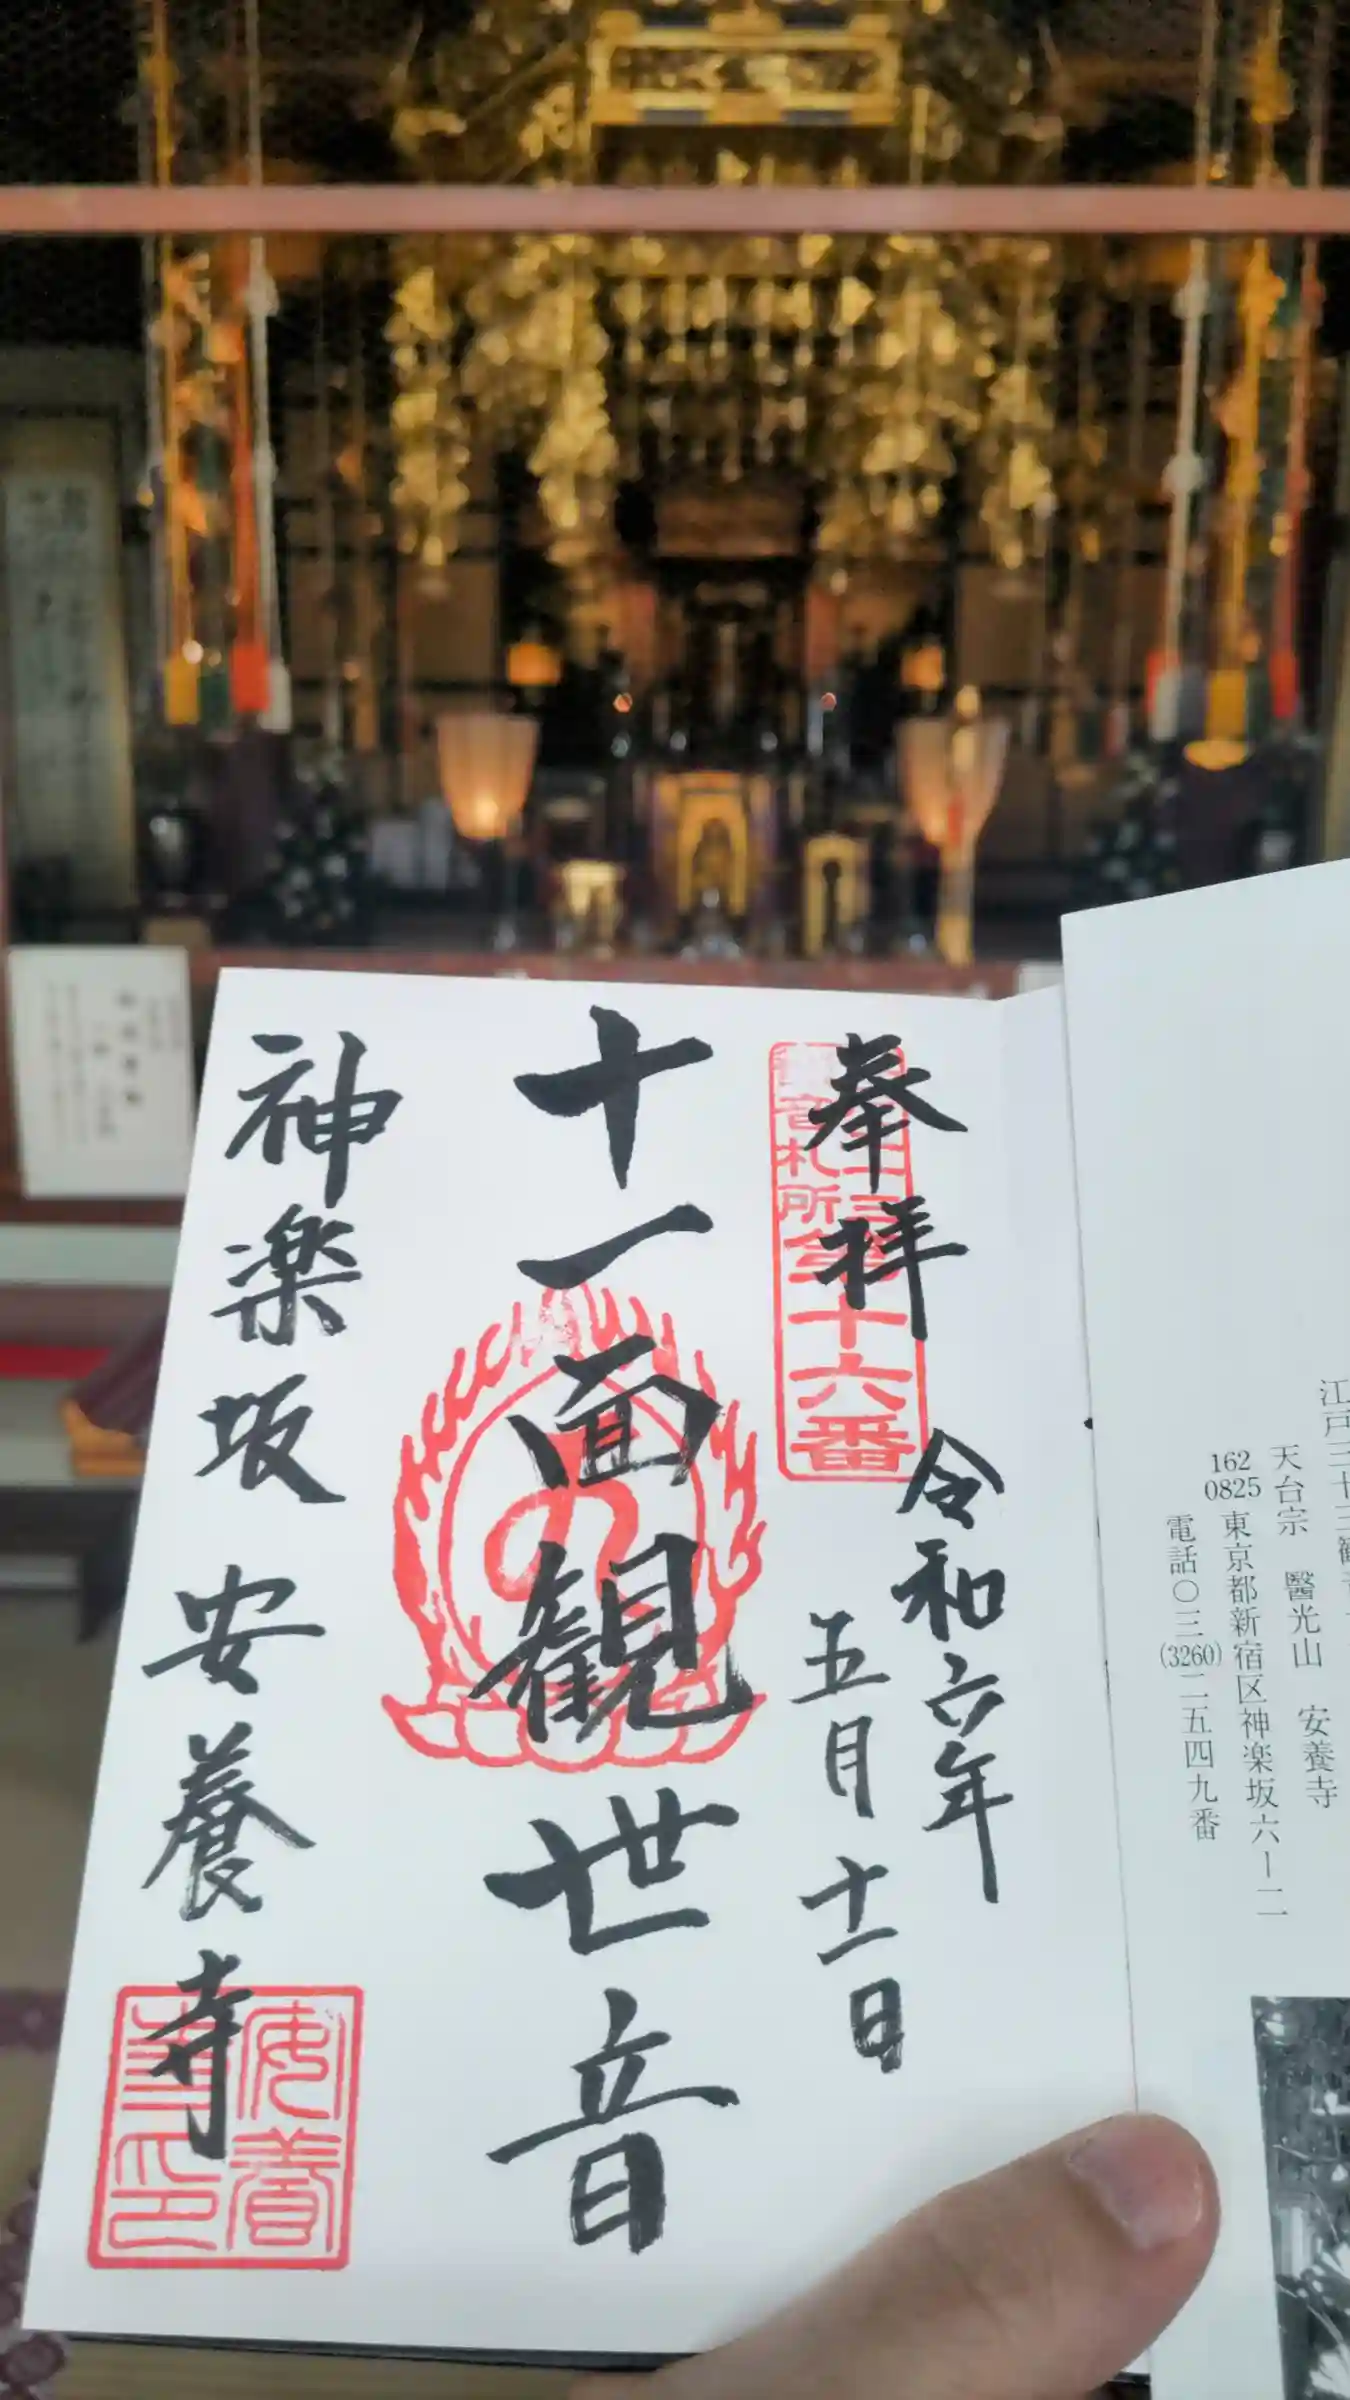 江戸三十三観音
天台宗 醫光山 安養寺
162
0825 東京都新宿区神楽坂六ー二
電話〇三(3260)二五四九番
奉拝
観音札所
第十六番
令和六年
五月十一日
十一面観世音
神楽坂 安養寺
安養
寺印